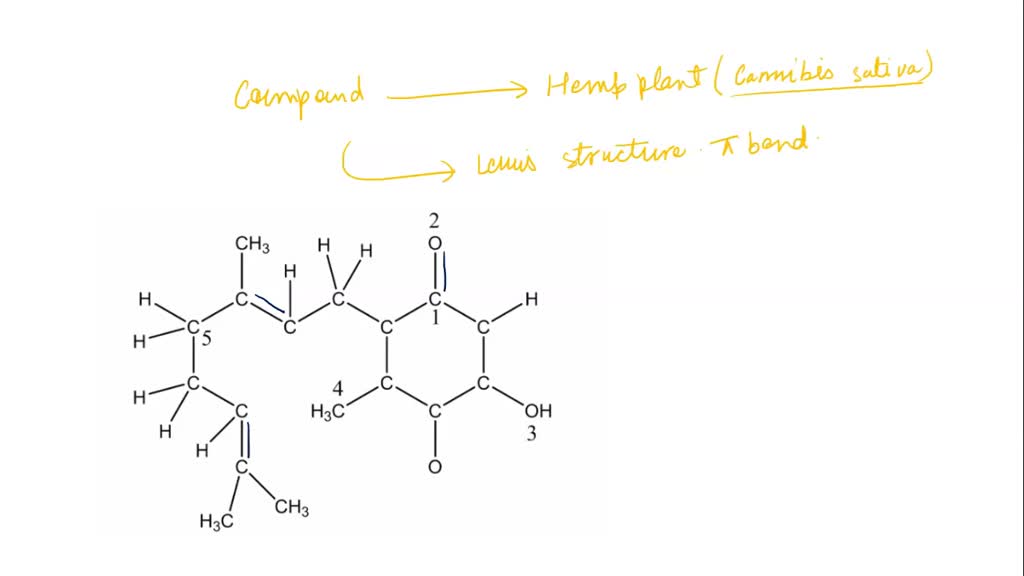 Compound → Hemp plant (Cannibis sativa)
Lewis structure. π bond.
2
CH₃ H H O
H
H C C C H
H C 5 C C 1 C
H C 4 C C
H C H₃C C OH
H H 3
C O
H₃C CH₃